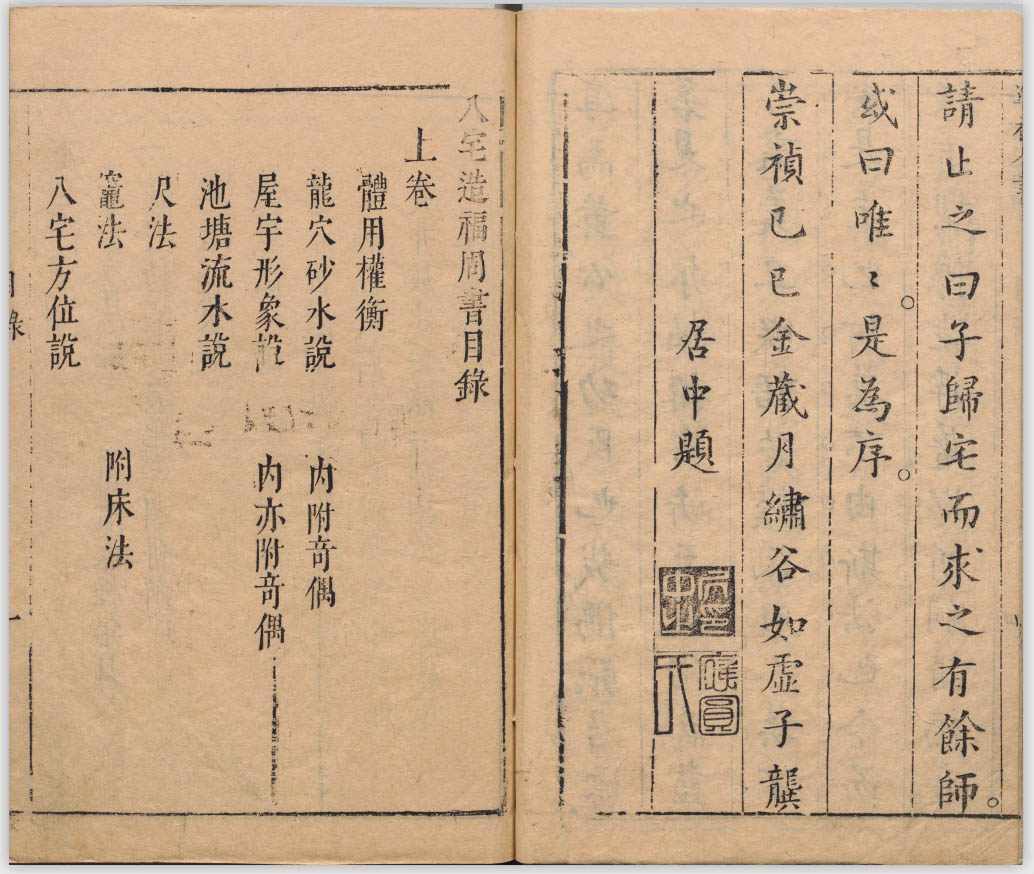 請止之曰子歸宅而求之有餘師。
或曰唯〻。是為序。
崇禎己巳金藏月繡谷如虛子龔
居中題
八宅造福周書目錄
上卷
體用權衡
龍穴砂水說 內附奇偶
屋宇形象說 內亦附奇偶
池塘流水說
尺法
竈法 附床法
八宅方位說
目錄 一